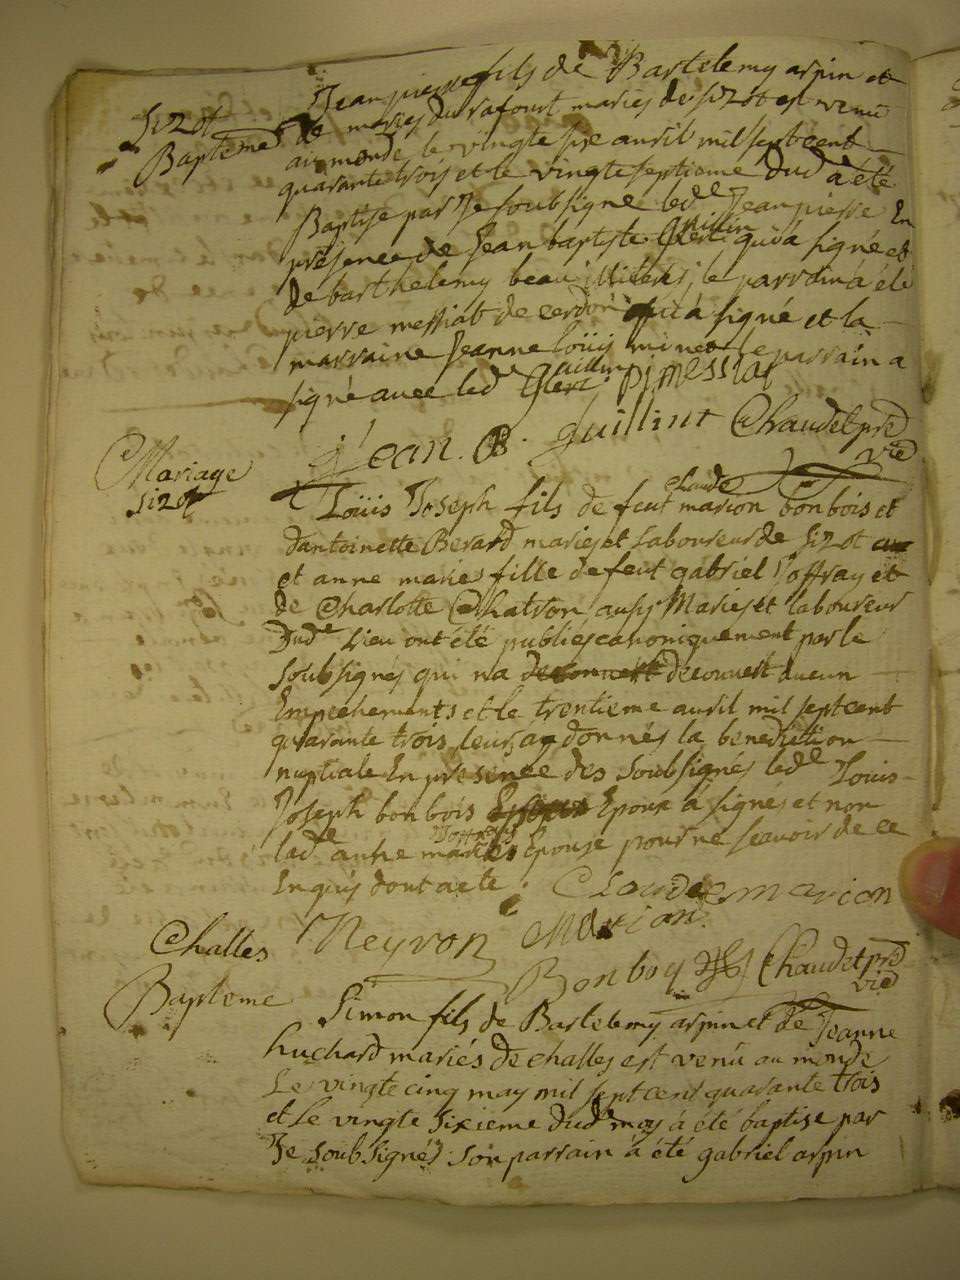 Sizot
Bapteme
Jean pierre fils de Bartelemy arpin et
de maries durafourt maries de sizot est venu
au monde le vingte six auril mil sept cent
quarante trois et le vingt septieme dud a été
Baptise par Je soubsigne led.e Jean pierre En
présence de Jean baptiste Guillin qui a signé et
de barthelemy beau ; le parrain á été
pierre messiat de cerdon qui á signé et la
marraine Jeanne loüis minet le parrain a
signé auec led.e Guillin pj messiat
jean . B . guillint Chaudet pre
vic
Mariage
sizot
Loüis Joseph fils de feut Claude marion bonbois et
d'antoinette Berard maries et Laboureur de Sizot
et anne maries fille defeut gabriel Joffray et
de Charlotte Chatron aussy Maries et laboureur
Dud.t Lieu ont été publiés canoniquement par le
Soubsignés qui na decouuert decouuert aucun
Empechements et le trentieme auril mil sept cent
quarante trois leur a donnés la benediction
nuptiale En presence des Soubsignés led.e Louis
Joseph bonbois Epoux á signés et non
lad.e anne maries Joffray Epouse pour ne scauoir de ce
Enquis dont acte . Claude marion
Neyron Marion
Bonboy Chaudet pre
vic
Challes
Bapteme
Simon fils de Bartelemy arpin et de Jeanne
huchard mariés de challes est venú au monde
Le vingte cinq may mil sept cent quarante trois
et le vingte sixieme dud moy á été baptise par
Je soubsignés son parrain á été gabriel arpin